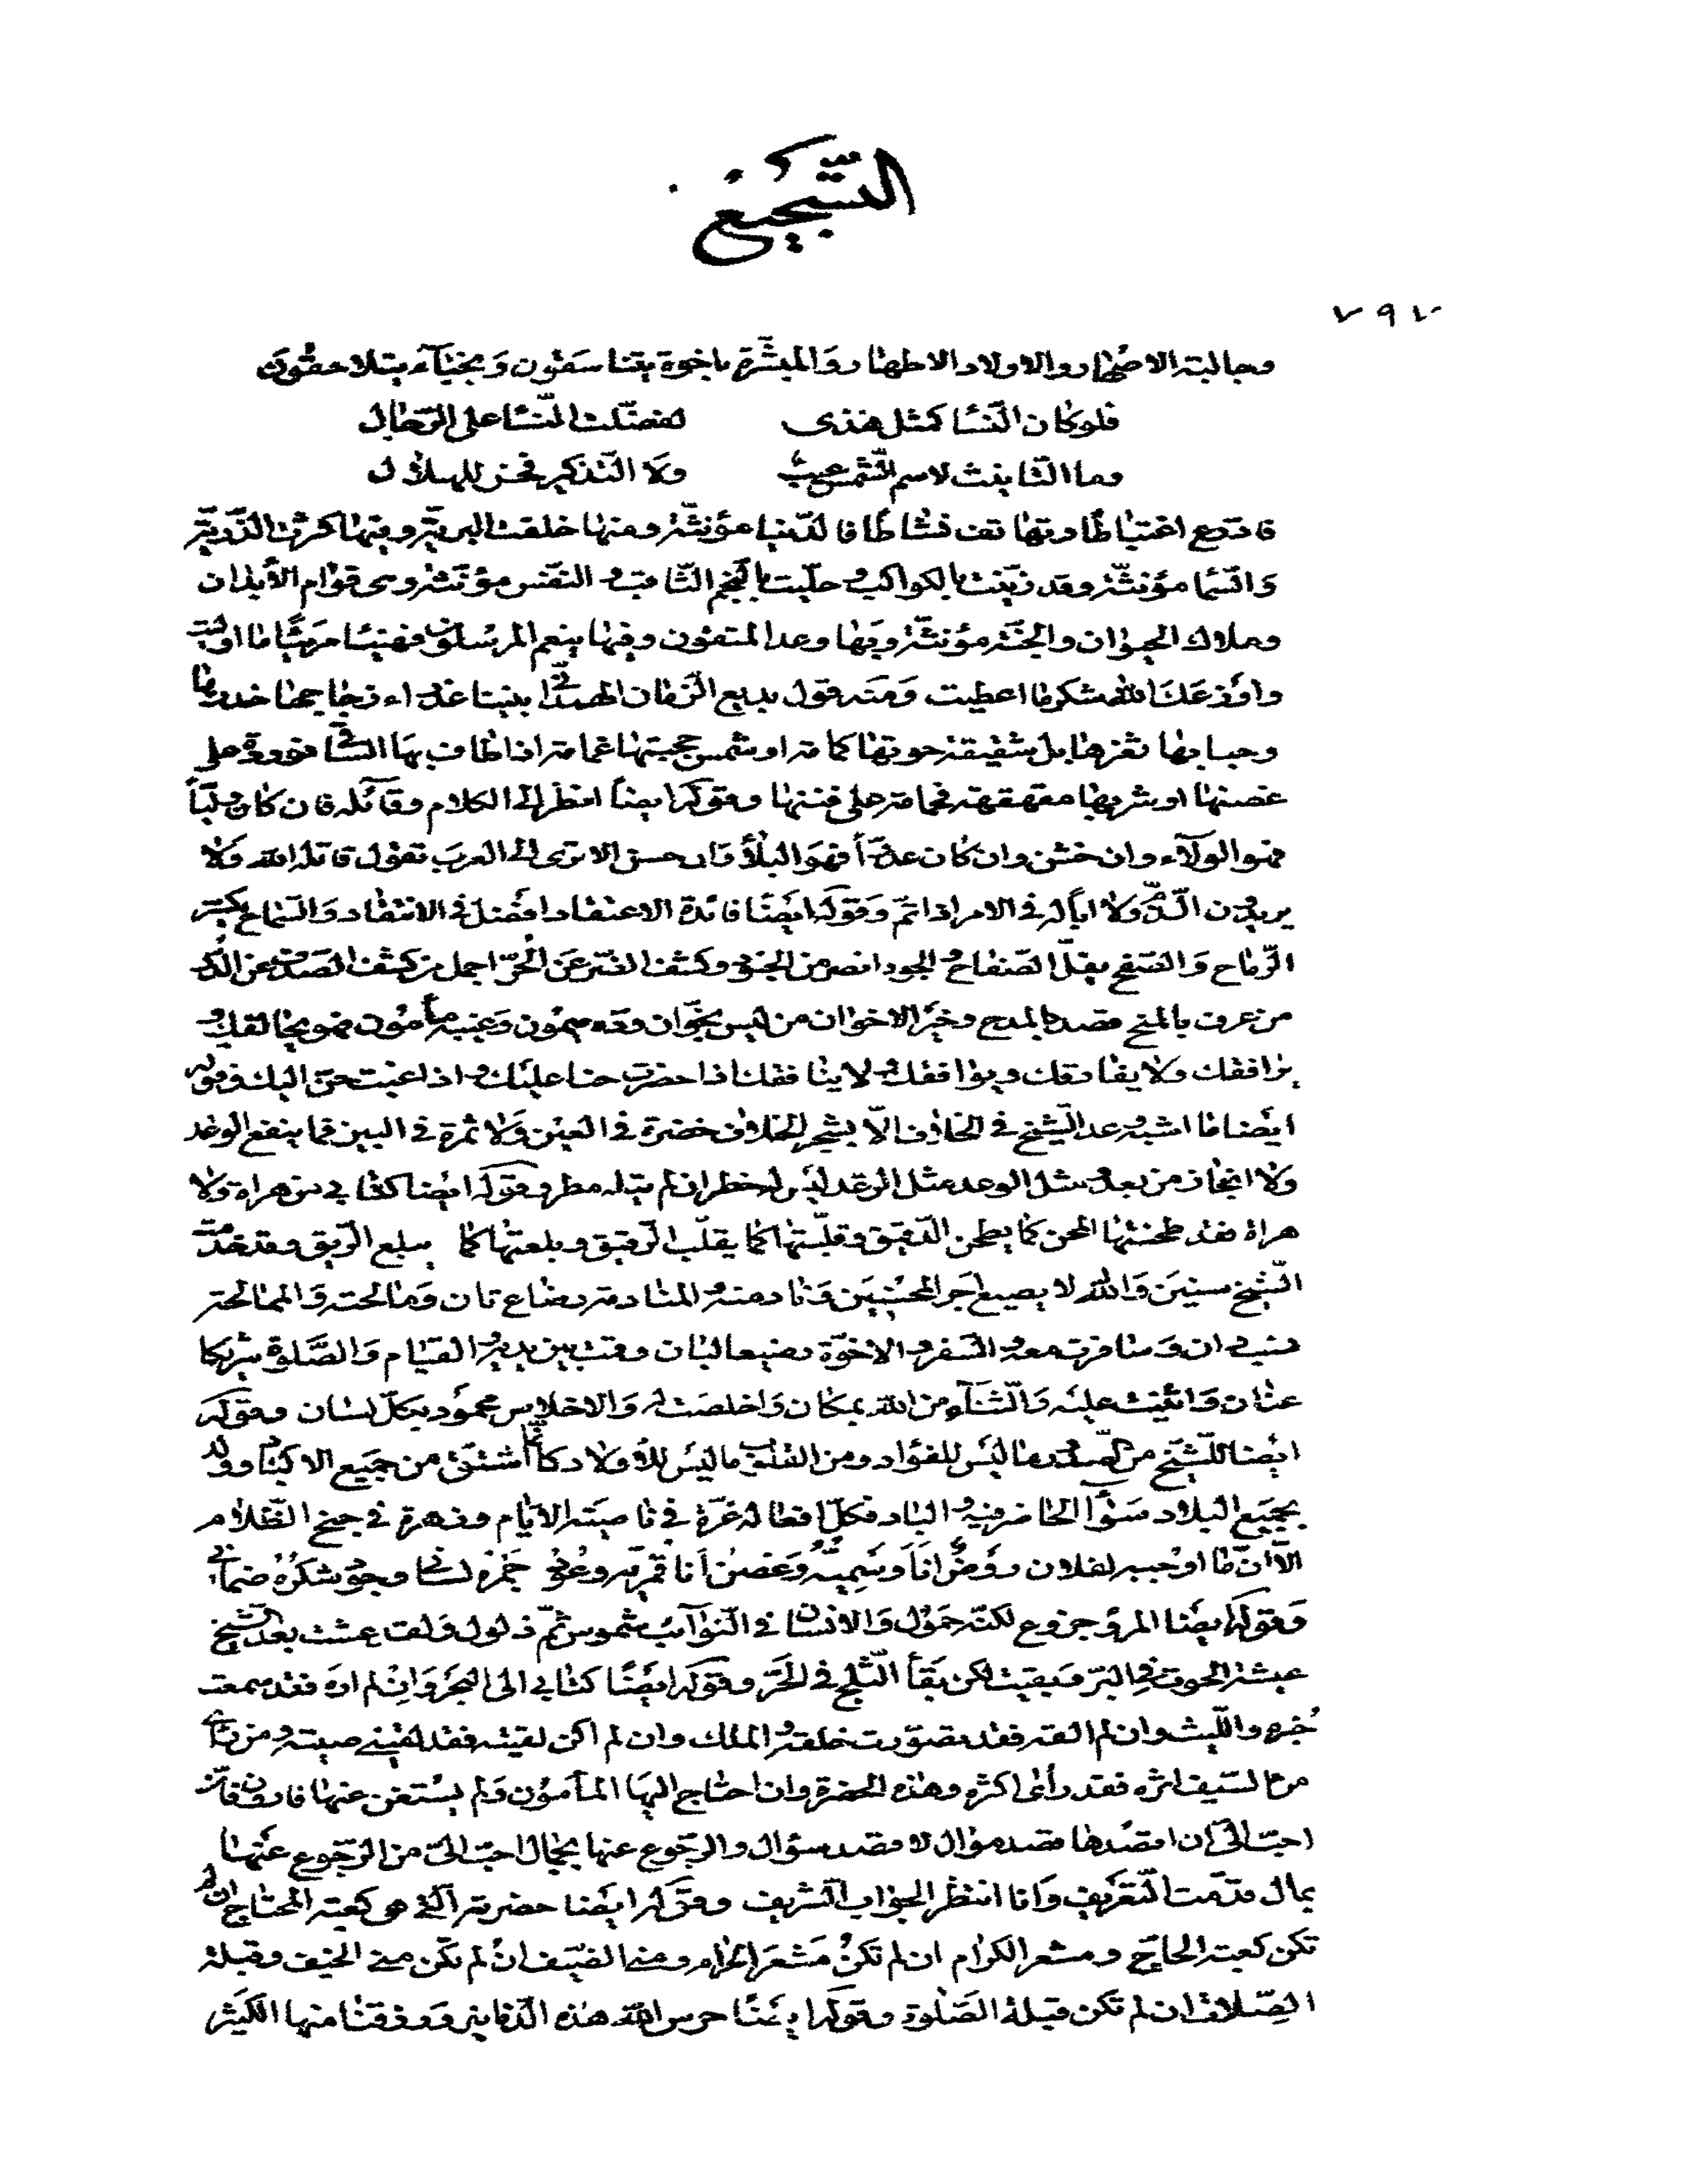 التسجيع
٧٩٧
وجالبة الاصهار والاولاد الاطهار والمبشرة باخوة يتناسقون ونجباء يتلاحقون
فلو كان النسا كمثل هذى لفضلت النسا على الرجال
وما التانيث لاسم الشمس عيب ولا التذكير فخر للهلال
فادرع اغتباطا وتهانف نشاطا فالدنيا مؤنثة ومنها خلقت البرية وفيها كثرت الذرية
والسما مؤنثة وقد زينت بالكواكب وحليت بالنجم الثاقب والنفس مؤنثة وهى قوام الابدان
وملاك الحيوان والجنة مؤنثة وبها وعد المتقون وفيها ينعم المرسلون فهنيئا مريئا ما اوليت
واوزعك الله شكر ما اعطيت ومنه قول بديع الزمان الهمدانى بينا عذراء زجاجها خدرها
وحبابها ثغرها بل شقيقة حوتها كمامة او شمس حجبتها غمامة اذا طاف بها الساقى فوردة على
غصنها او شربها مقهقهة فحمامة على فننها وقوله ايضا انظر الى الكلام وقائله فان كان وليا
فهو الولاء وان خشن وان كان عدوا فهو البلاء وان حسن الا ترى الى العرب تقول قاتله الله ولا
يريدون الذم ولا ابا له فى الامر اذا تم وقوله ايضا فائدة الاعتقاد افضل فى الانتقاد والسماح يكسر
الرماح والصفح يفل الصفاح والجود انصر من الجنود وكشف الضر عن الحر اجمل من كشف الصدف عن الدر
من عرف بالمنح قصد بالمدح وخير الاخوان من ليس بخوان وده ميمون وغيبه مأمون فهو يحالفك و
يرافقك ولا يفارقك ويوافقك ولا ينافقك اذا حضرت حنا عليك واذا غبت حن اليك وقوله
ايضا ما اشبه وعد الشيخ فى الخلاف الا بشجر الخلاف خضرة فى العين ولا ثمرة فى البين فما ينفع الوعد
ولا انجاز من بعد ومثل الوعد مثل الرعد ليس له خطر ان لم يتله مطر وقوله ايضا كتابى من هراة ولا
هراة فقد طحنتها المحن كما يطحن الدقيق وقلبتها كما يقلب الرقيق وبلعتها كما يبلع الريق وقد خدمت
الشيخ سنين والله لا يضيع اجر المحسنين ونادمته والمنادمة رضاع ثان ومالحته والممالحة
نسب دان وسافرت معه والسفر والاخوة رضيعا لبان وقمت بين يديه والقيام والصلوة شريكا
عنان واثنيت عليه والثناء من الله بمكان واخلصت له والاخلاص محمود بكل لسان وقوله
ايضا للشيخ من الصدور ما ليس للفؤاد ومن القلوب ما ليس للاولاد كانما اشتق من جميع الاكباد وولد
بجميع البلاد سواء الحاضر فيه والباد فكل افعاله غرة فى ناصية الايام وزهرة فى جنح الظلام
الا ان ما اوجبه لفلان روض انا وسميه وغصن انا قمريه وعود جمره لسانى وجو شكره ضمانى
وقوله ايضا المرؤ جزوع لكنه حمول والانسان فى النوائب شموس ثم ذلول ولقد عشت بعد الشيخ
عيشة الحوت فى البر وبقيت لكن بقأ الثلج فى الحر وقوله ايضا كتابى الى البحر وان لم اره فقد سمعت
خبره والليث وان لم القه فقد تصورت خلقه والملك وان لم اكن لقيته فقد لقينى صيته ومن رأى
من السيف اثره فقد رأى اكثره وهذه الحضرة وان احتاج اليها المامون ولم يستغن عنها قارون فان
احب الى ان اقصدها قصد موال لا قصد سؤال والرجوع عنها بجمال احب الى من الرجوع عنها
بمال قدمت التعريف وانا انتظر الجواب الشريف وقوله ايضا حضرته التى هى كعبة المحتاج ان لم
تكن كعبة الحاج ومشعر الكرام ان لم تكن مشعر الحرام ومنى الضيف ان لم تكن منى الخيف وقبلة
الصلات ان لم تكن قبلة الصلوة وقوله ايضا حرس الله هذه الدنانير ورزقنا منها الكثير